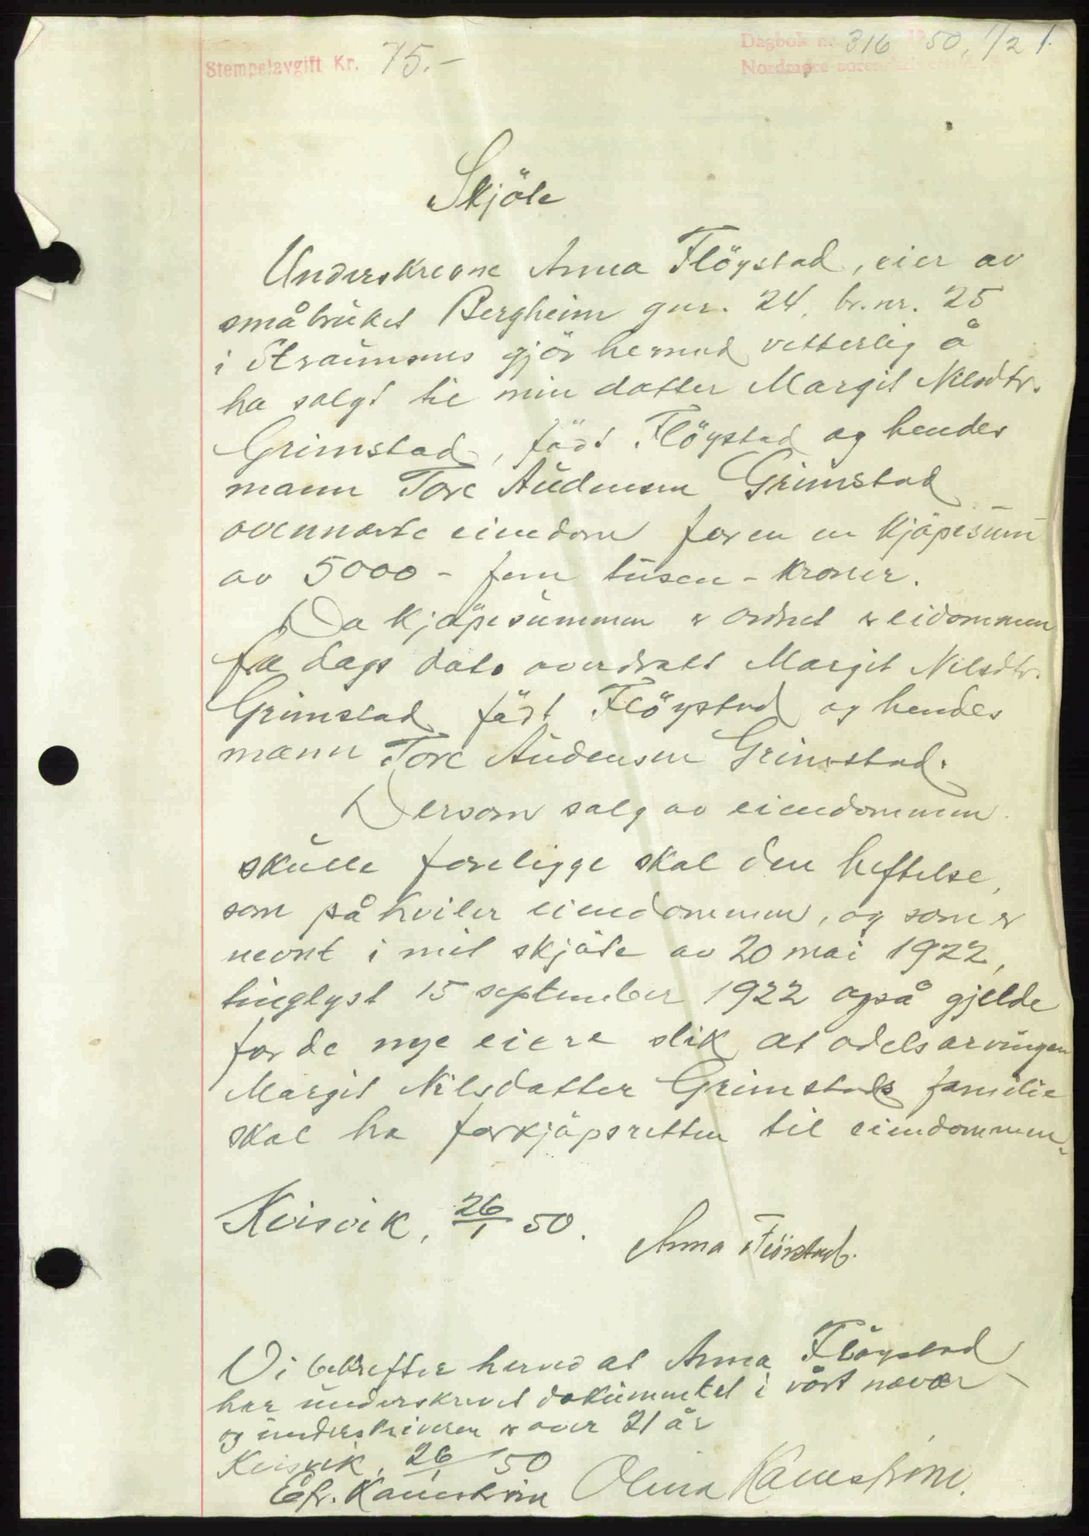 Stempelavgift Kr. 75.-
Dagbok nr. 316 1950, 1/2
Nordmøre
Skjöte
Underskrevne Anna Flöystad, eier av
småbruket Bergheim gnr. 24, br.nr. 25
i Straumsnes gjör hermed vitterlig å
ha solgt til min datter Margit Nilsdtr.
Grimstad, födt Flöystad og hendes
mann Tore Audensen Grimstad
ovennevte eiendom for en en kjöpesum
av 5000 - fem tusen - kroner.
Da kjöpesummen er ordnet er eidommen
fra dags dato overdratt Margit Nilsdtr.
Grimstad födt Flöystad og hendes
mann Tore Audensen Grimstad.
Dersom salg av eiendommen
skulle foreligge skal den heftelse,
som påhviler eiendommen, og som er
nevnt i mit skjöte av 20 mai 1922,
tinglyst 15 september 1922 også gjelde
for de nye eiere slik at odelsarvingen
Margit Nilsdatter Grimstads familie
skal ha forkjöpsretten til eiendommen.
Kvisvik, 26/1 50.
Anna Flöistad.
Vi bekrefter herved at Anna Flöystad
har underskrevet dokumentet i vårt nævær
og underskriveren er over 21 år
Kvisvik, 26/1 50
Olina Kamstrøm.